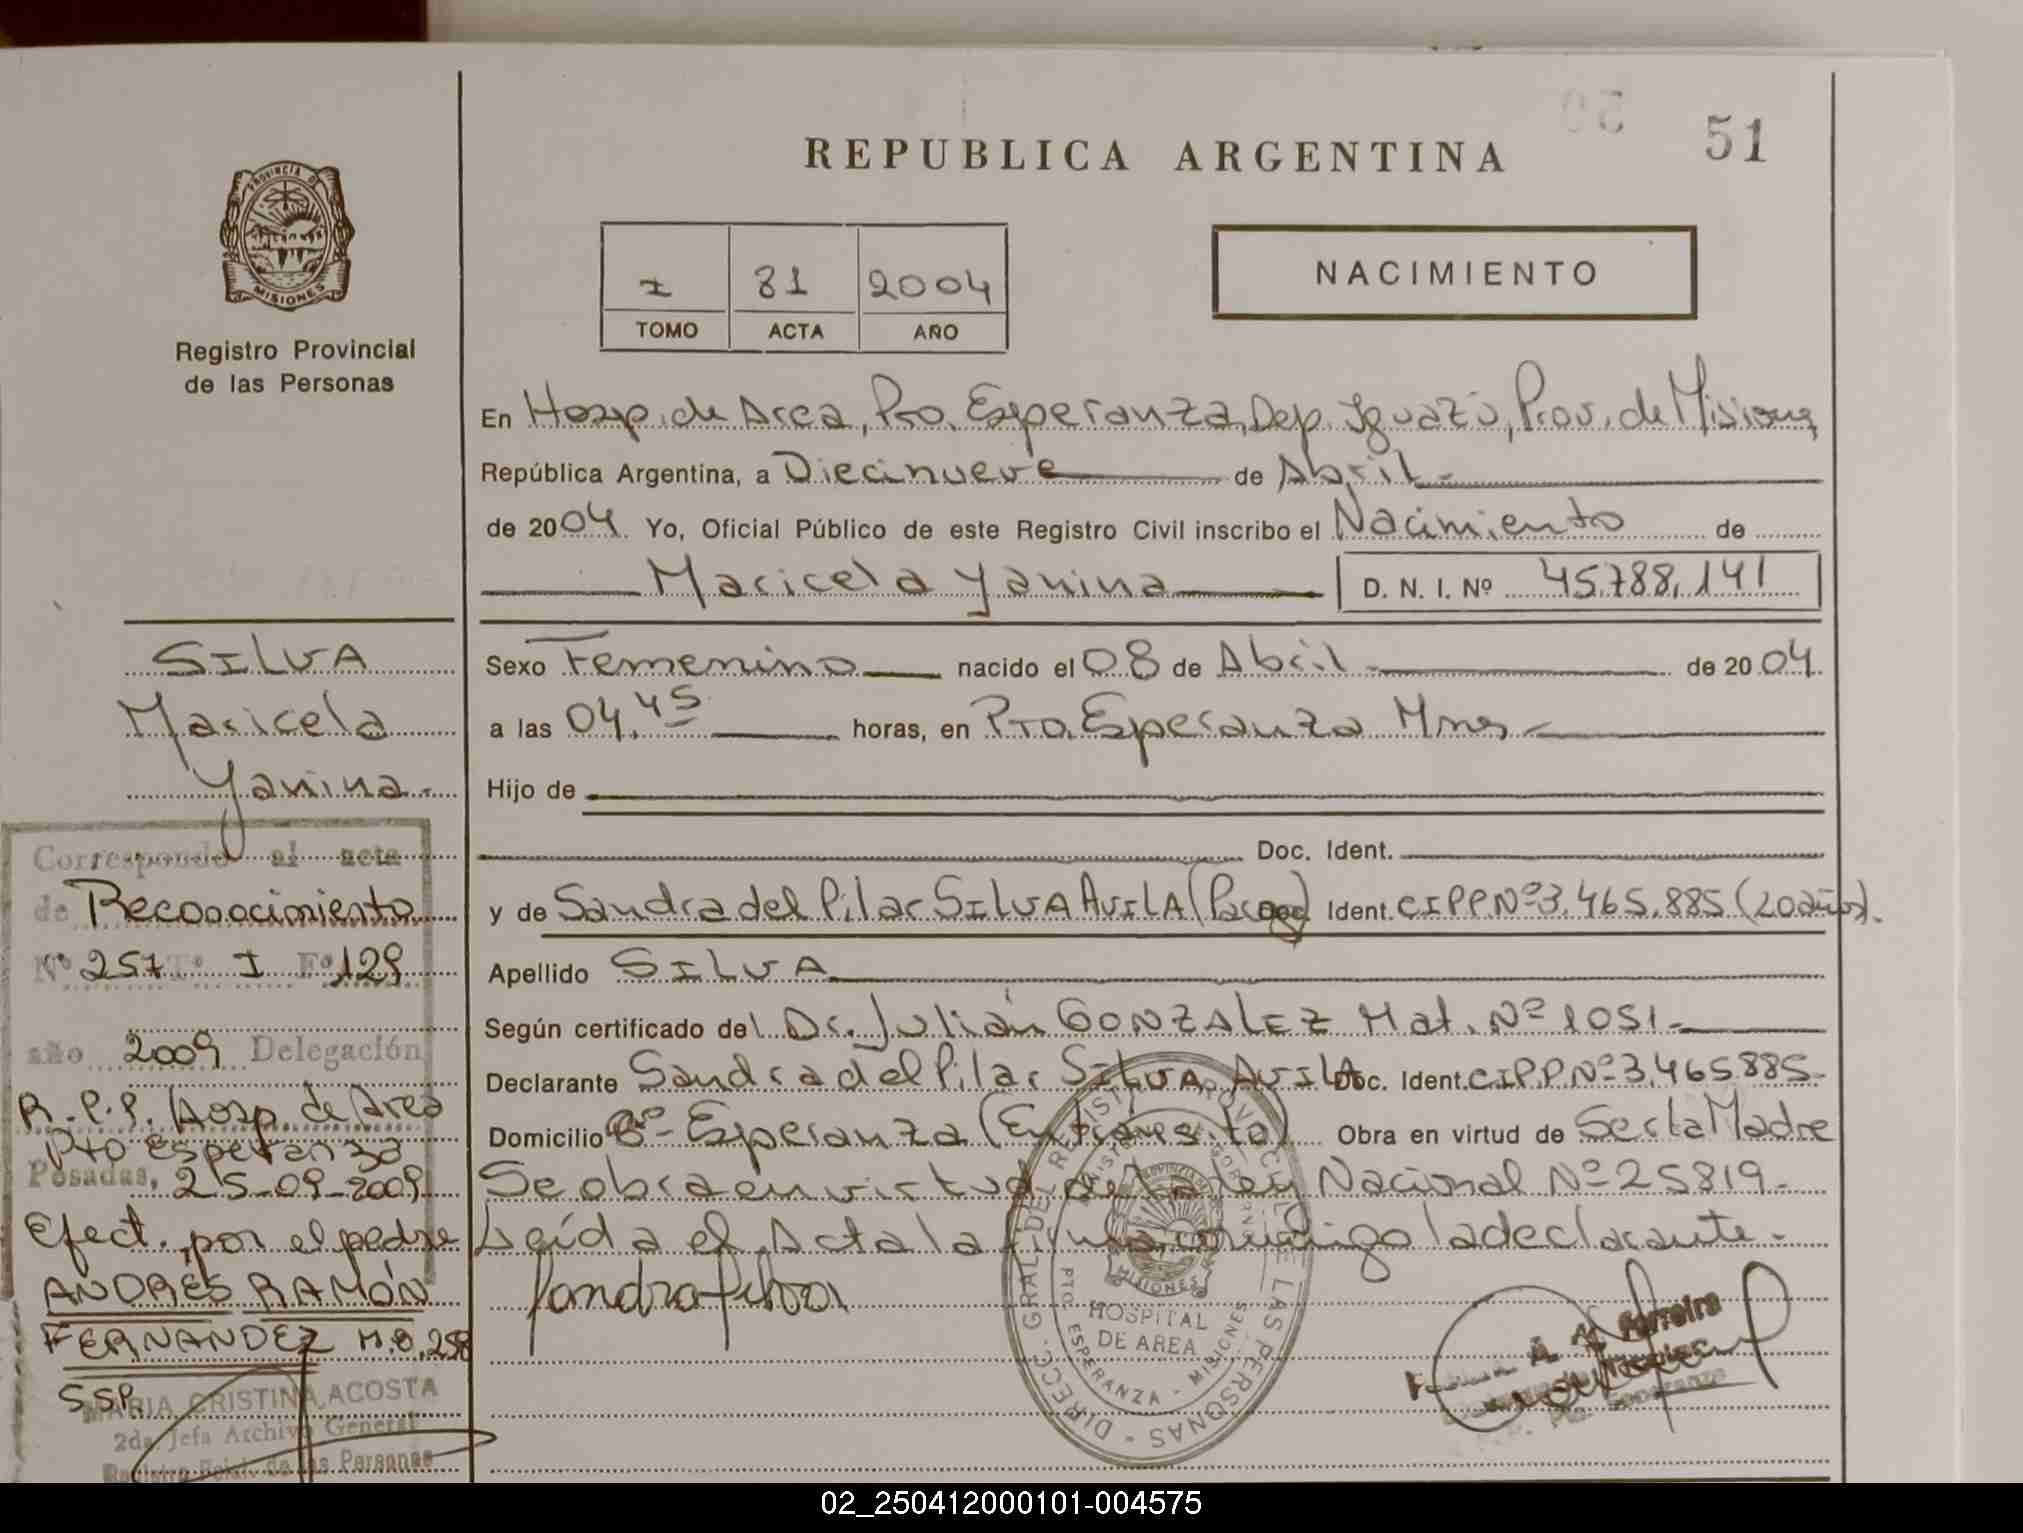 51
REPUBLICA ARGENTINA
PROVINCIA DE
MISIONES
Registro Provincial
de las Personas
I 81 2004
TOMO ACTA AÑO
NACIMIENTO
En Hosp. de Area, Pto. Esperanza, Dep. Iguazú, Prov. de Misiones
República Argentina, a Diecinueve de Abril
de 2004 Yo, Oficial Público de este Registro Civil inscribo el Nacimiento de
Maricela Yanina D. N. I. Nº 45.788.141
Sexo Femenino nacido el 08 de Abril de 2004
a las 04.45 horas, en Pto. Esperanza Mnes
Hijo de
Doc. Ident.
y de Sandra del Pilar SILVA AVILA (Parag) Doc. Ident. CIPP Nº 3.465.885 (20 años).
Apellido SILVA
Según certificado del Dr. Julián GONZALEZ Mat. Nº 1051.
Declarante Sandra del Pilar SILVA AVILA Doc. Ident. C.I.P.P. Nº 3.465.885
Domicilio Bº Esperanza Obra en virtud de Ser la Madre
Se obra en virtud de la Ley Nacional Nº 25819.
Leída el Acta la firma conmigo la declarante.
Sandra Silva
DIRECC. GRAL. DEL REGISTRO PROVINCIAL DE LAS PERSONAS
HOSPITAL
DE AREA
PTO. ESPERANZA - MISIONES
A. M. Ferreira
SILVA
Maricela
Yanina.
Corresponde al acta
de Reconocimiento
Nº 257 Tº I Fº 129
año 2009 Delegación
R.P.P. Hosp. de Area
Pto Esperanza
Posadas, 25-09-2009
Efect. por el padre
ANDRES RAMÓN
FERNANDEZ M.B. 258
SSP.
MARIA CRISTINA ACOSTA
2da Jefa Archivo General
Registro Pcial. de las Personas
02_250412000101-004575